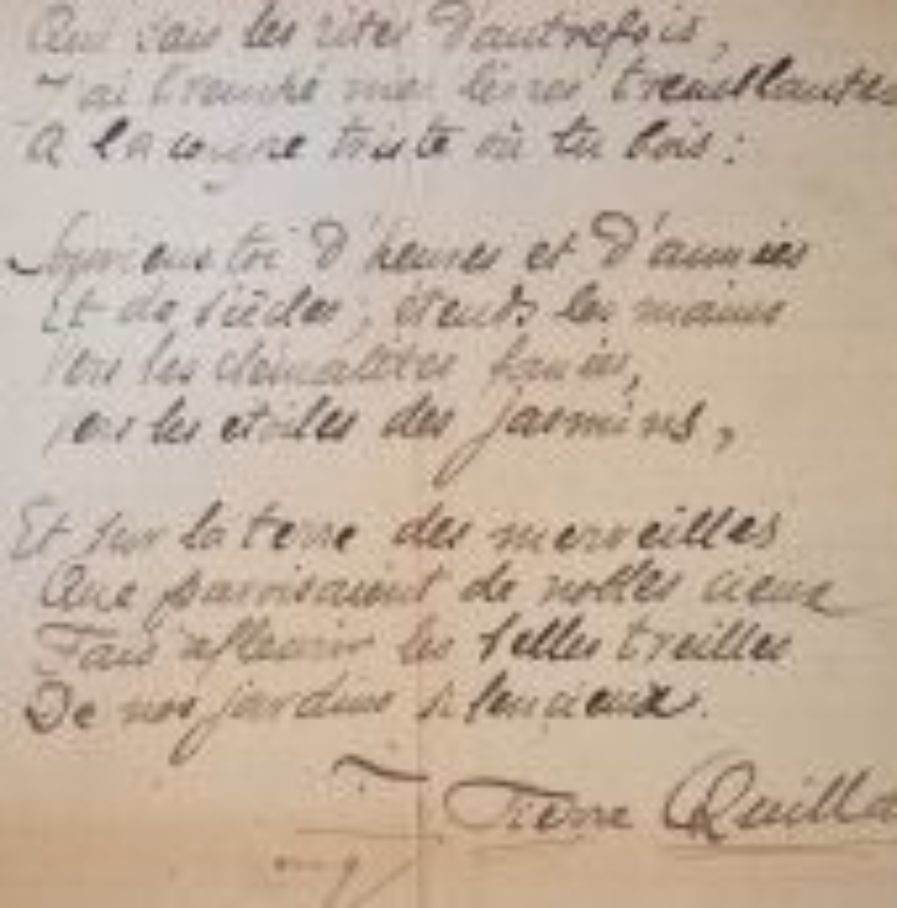 Qui sais les rites d'autrefois,
J'ai trempé mes lèvres tremblantes
A la coupe triste où tu bois:
Souviens toi d'heures et d'années
Et de siècles; étends les mains
Vers les clématites fanées,
Vers les étoiles des jasmins,
Et sur la terre des merveilles
Que pavoisaient de nobles cieux
Fais refleurir les belles treilles
De nos jardins silencieux.
Pierre Quillard